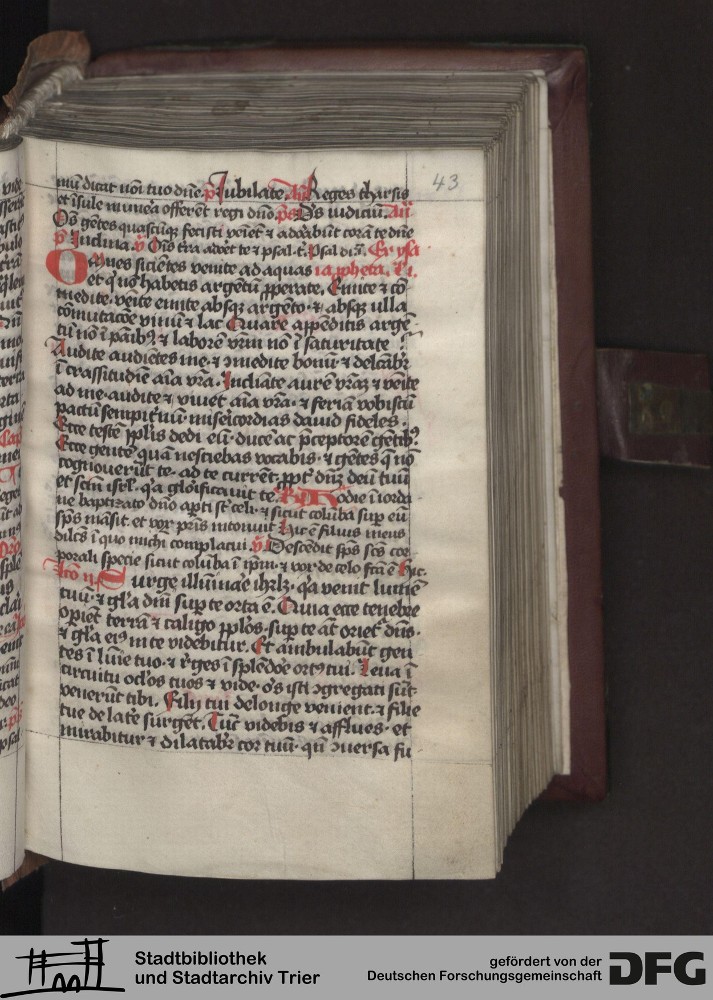 43
niū dicat noī tuo dn̄e. p̄s Jubilate. Añ Reges tharsis
et īsule munera offerēt regi dn̄o p̄s Ds iudiciū. Añ
Oēs gētes quascūq; fecisti veniēt & adorabūt corā te dn̄e
p̄s Inclina. ỹ Oīs t̄ra adoret te & psal. t̄. Psal. di. Ex ysa
Omnes sicientes venite ad aquas ia propheta. L. i.
et q̇ nō habetis argētū properate. Emite & cō
medite. venite emite absq; argēto. & absq; ulla
cōmutacōe vinū & lac Quare appēditis argē
tū nō ī panib; & laborē vrm̄ nō ī saturitate
Audite audiētes me. & ↄmedite bonū & delcābr
ī crassitudīe aīa vrā. Inclīate aurē vrāz & venite
ad me. audite & vivet aīa vrā. & feriā vobiscū
pactū sempit̄nū misericordias david fideles.
Ecce testē pplis dedi eū. ducē ac p̄ceptorē gētib;
Ecce gentē quā nesciebas vocabis. & gētes q̄ nō
cognoverūt te. ad te current. ppt̄ dn̄z deū tuū
et scm̄ isrl̄. q̇a glōificavit te. R Hodie ī iorda
ne baptizato dn̄o apti st̄ celi. & sicut colūba sup eū
sps māsit. et vox pris intonuit Hic ē filius meus
dilcs ī quo michi complacui. ỹ Descēdit sps scs cor
porali specie sicut colūba ī ip̄m. & vox de celo fcā ē Hic.
Lcō ii. Surge illūinare ihrlz. q̇a venit lumē
tuū. & glā dn̄i sup te orta ē. Quia ecce tenebre
opiēt terrā & caligo pplos. sup te at̄ oriet̄ dn̄s.
& glā eis in te videbitur. Et ambulabūt gen
tes ī lūīe tuo. & reges ī splēdore ort9 tui. Leva ī
circuitu oclos tuos & vide. oēs isti ↄgregati sūt
venerūt tibi. Filij tui de longe venient & filie
tue de late surgēt. Tūc videbis & afflues. et
mirabitur & dilatabr̄ cor tuū. qn̄ ↄversa fu
Stadtbibliothek
und Stadtarchiv Trier
gefördert von der
Deutschen Forschungsgemeinschaft DFG